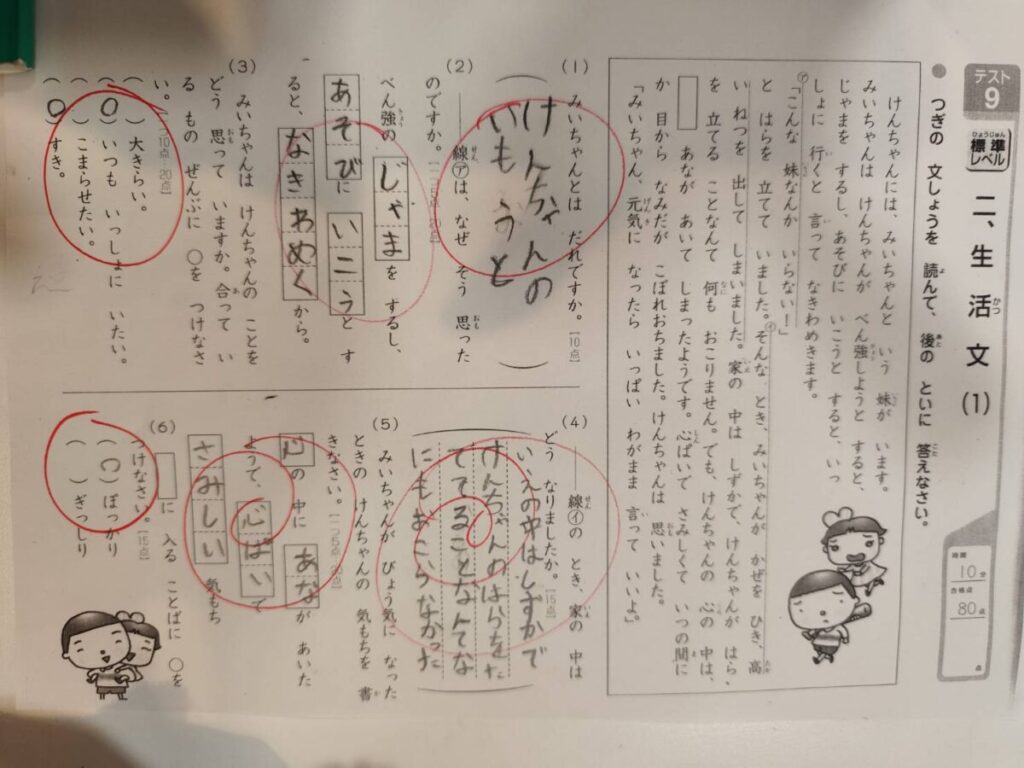 テスト 9
標準レベル
ひょうじゅん
二、生活文(1)
かつ
● つぎの 文しょうを 読んで、後の といに 答えなさい。
時間
10分
合格点
80点
点
けんちゃんには、みいちゃんと いう 妹が います。
みいちゃんは けんちゃんが べん強しようと すると、
じゃまを するし、あそびに いこうと すると、いっ
しょに 行くと 言って なきわめきます。
㋐「こんな 妹なんか いらない!」
と はらを 立てて いました。㋑そんな とき、みいちゃんが かぜを ひき、高
い ねつを 出して しまいました。家の 中は しずかで、けんちゃんが はら
を 立てる ことなんて 何も おこりません。でも、けんちゃんの 心の 中は、
□ あなが あいて しまったようです。心ぱいで さみしくて いつの間に
か 目から なみだが こぼれおちました。けんちゃんは 思いました。
「みいちゃん、元気に なったら いっぱい わがまま 言って いいよ」。
(1) みいちゃんとは だれですか。[10点]
けんちゃんの
いもうと
(2) ――線㋐は、なぜ そう 思った
のですか。
べん強の じゃまを するし、
あそびに いこうと す
ると、なきわめくから。
(3) みいちゃんは けんちゃんの ことを
どう 思って いますか。合って い
る もの ぜんぶに ○を つけなさ
い。
( ) 大きらい。
(○) いつも いっしょに いたい。
( ) こまらせたい。
(○) すき。
(4) ――線㋑の とき、家の 中は
どう なりましたか。[15点]
いえの中はしずかで
けんちゃんのはらをた
てることなんてな
にもおこらなかった
(5) みいちゃんが びょう気に なった
ときの けんちゃんの 気もちを 書
きなさい。
心の 中に あなが あいた
ようで、心ぱいで
さみしい 気もち
(6) □に 入る ことばに ○を
つけなさい。[15点]
(○)ぽっかり
( )ぎっしり